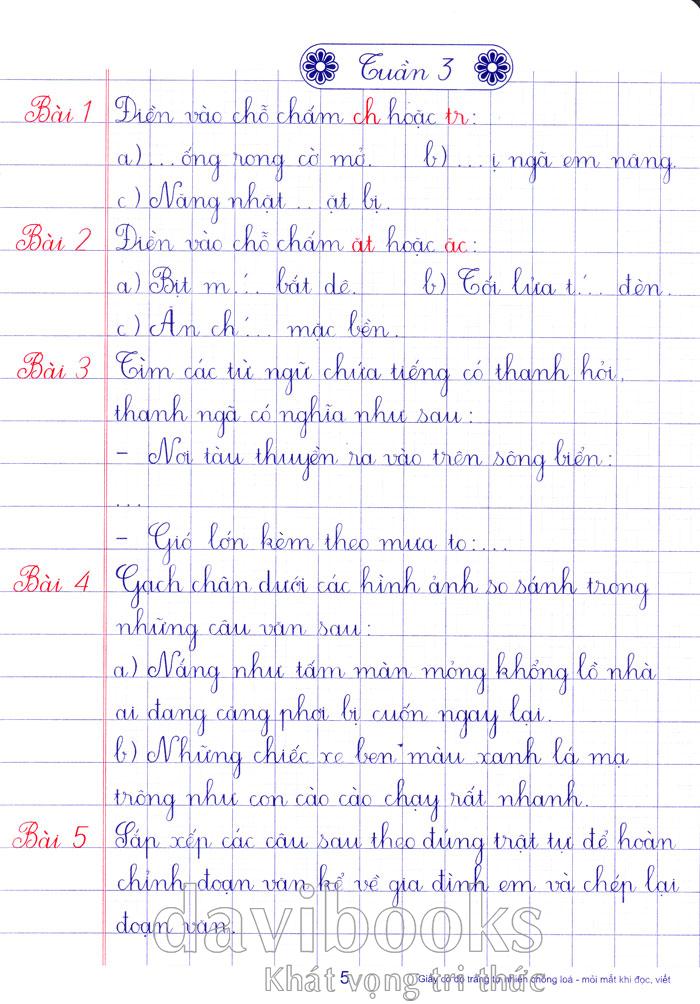 Tuần 3
Bài 1 Điền vào chỗ chấm ch hoặc tr:
a) ... ống rong cờ mở. b) ... ị ngã em nâng.
c) Năng nhặt ... ặt bị.
Bài 2 Điền vào chỗ chấm ăt hoặc ăc:
a) Bịt m ... bắt dê. b) Tối lửa t ... đèn.
c) Ăn ch ... mặc bền.
Bài 3 Tìm các từ ngữ chứa tiếng có thanh hỏi,
thanh ngã có nghĩa như sau:
- Nơi tàu thuyền ra vào trên sông biển:
...
- Gió lớn kèm theo mưa to:...
Bài 4 Gạch chân dưới các hình ảnh so sánh trong
những câu văn sau:
a) Nắng như tấm màn mỏng khổng lồ nhà
ai đang căng phơi bị cuốn ngay lại.
b) Những chiếc xe ben* màu xanh lá mạ
trông như con cào cào chạy rất nhanh.
Bài 5 Sắp xếp các câu sau theo đúng trật tự để hoàn
chỉnh đoạn văn kể về gia đình em và chép lại
đoạn văn.
davibooks
Khát vọng tri thức
5
Giấy có độ trắng tự nhiên chống loá - mỏi mắt khi đọc, viết